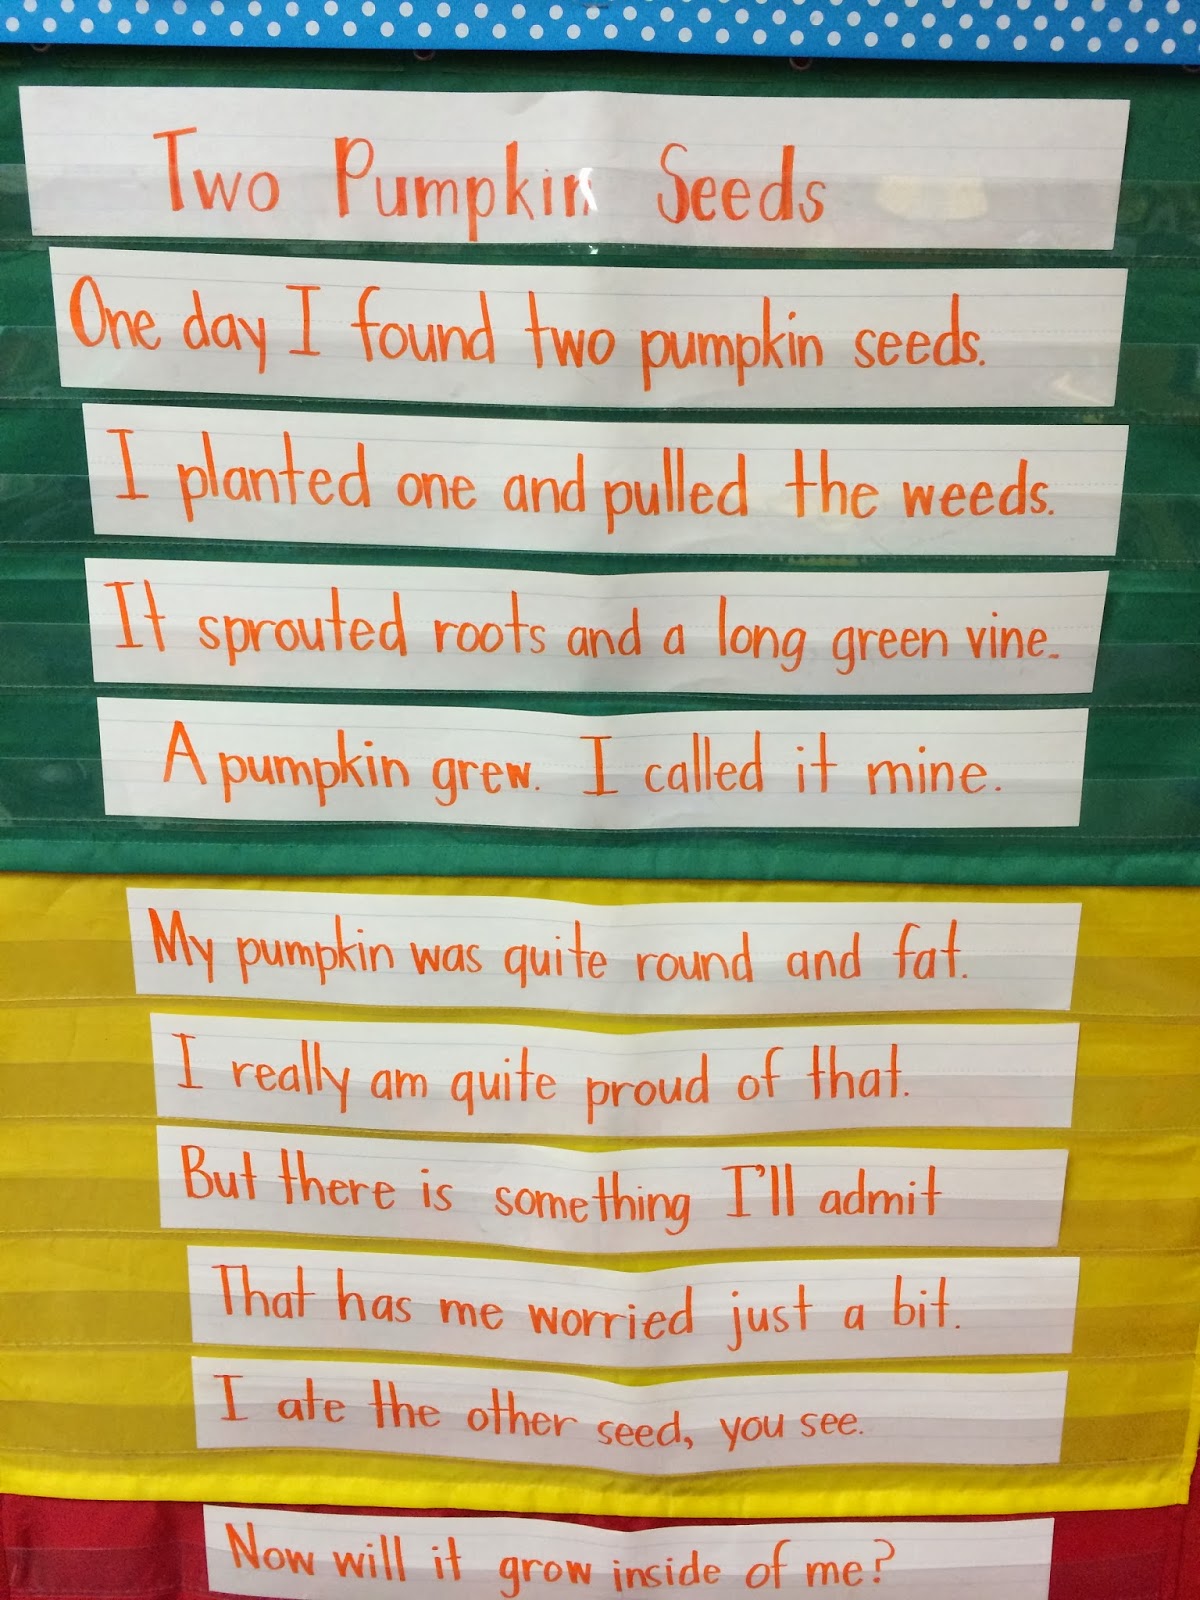 Two Pumpkin Seeds
One day I found two pumpkin seeds.
I planted one and pulled the weeds.
It sprouted roots and a long green vine.
A pumpkin grew. I called it mine.
My pumpkin was quite round and fat.
I really am quite proud of that.
But there is something I'll admit
That has me worried just a bit.
I ate the other seed, you see.
Now will it grow inside of me?